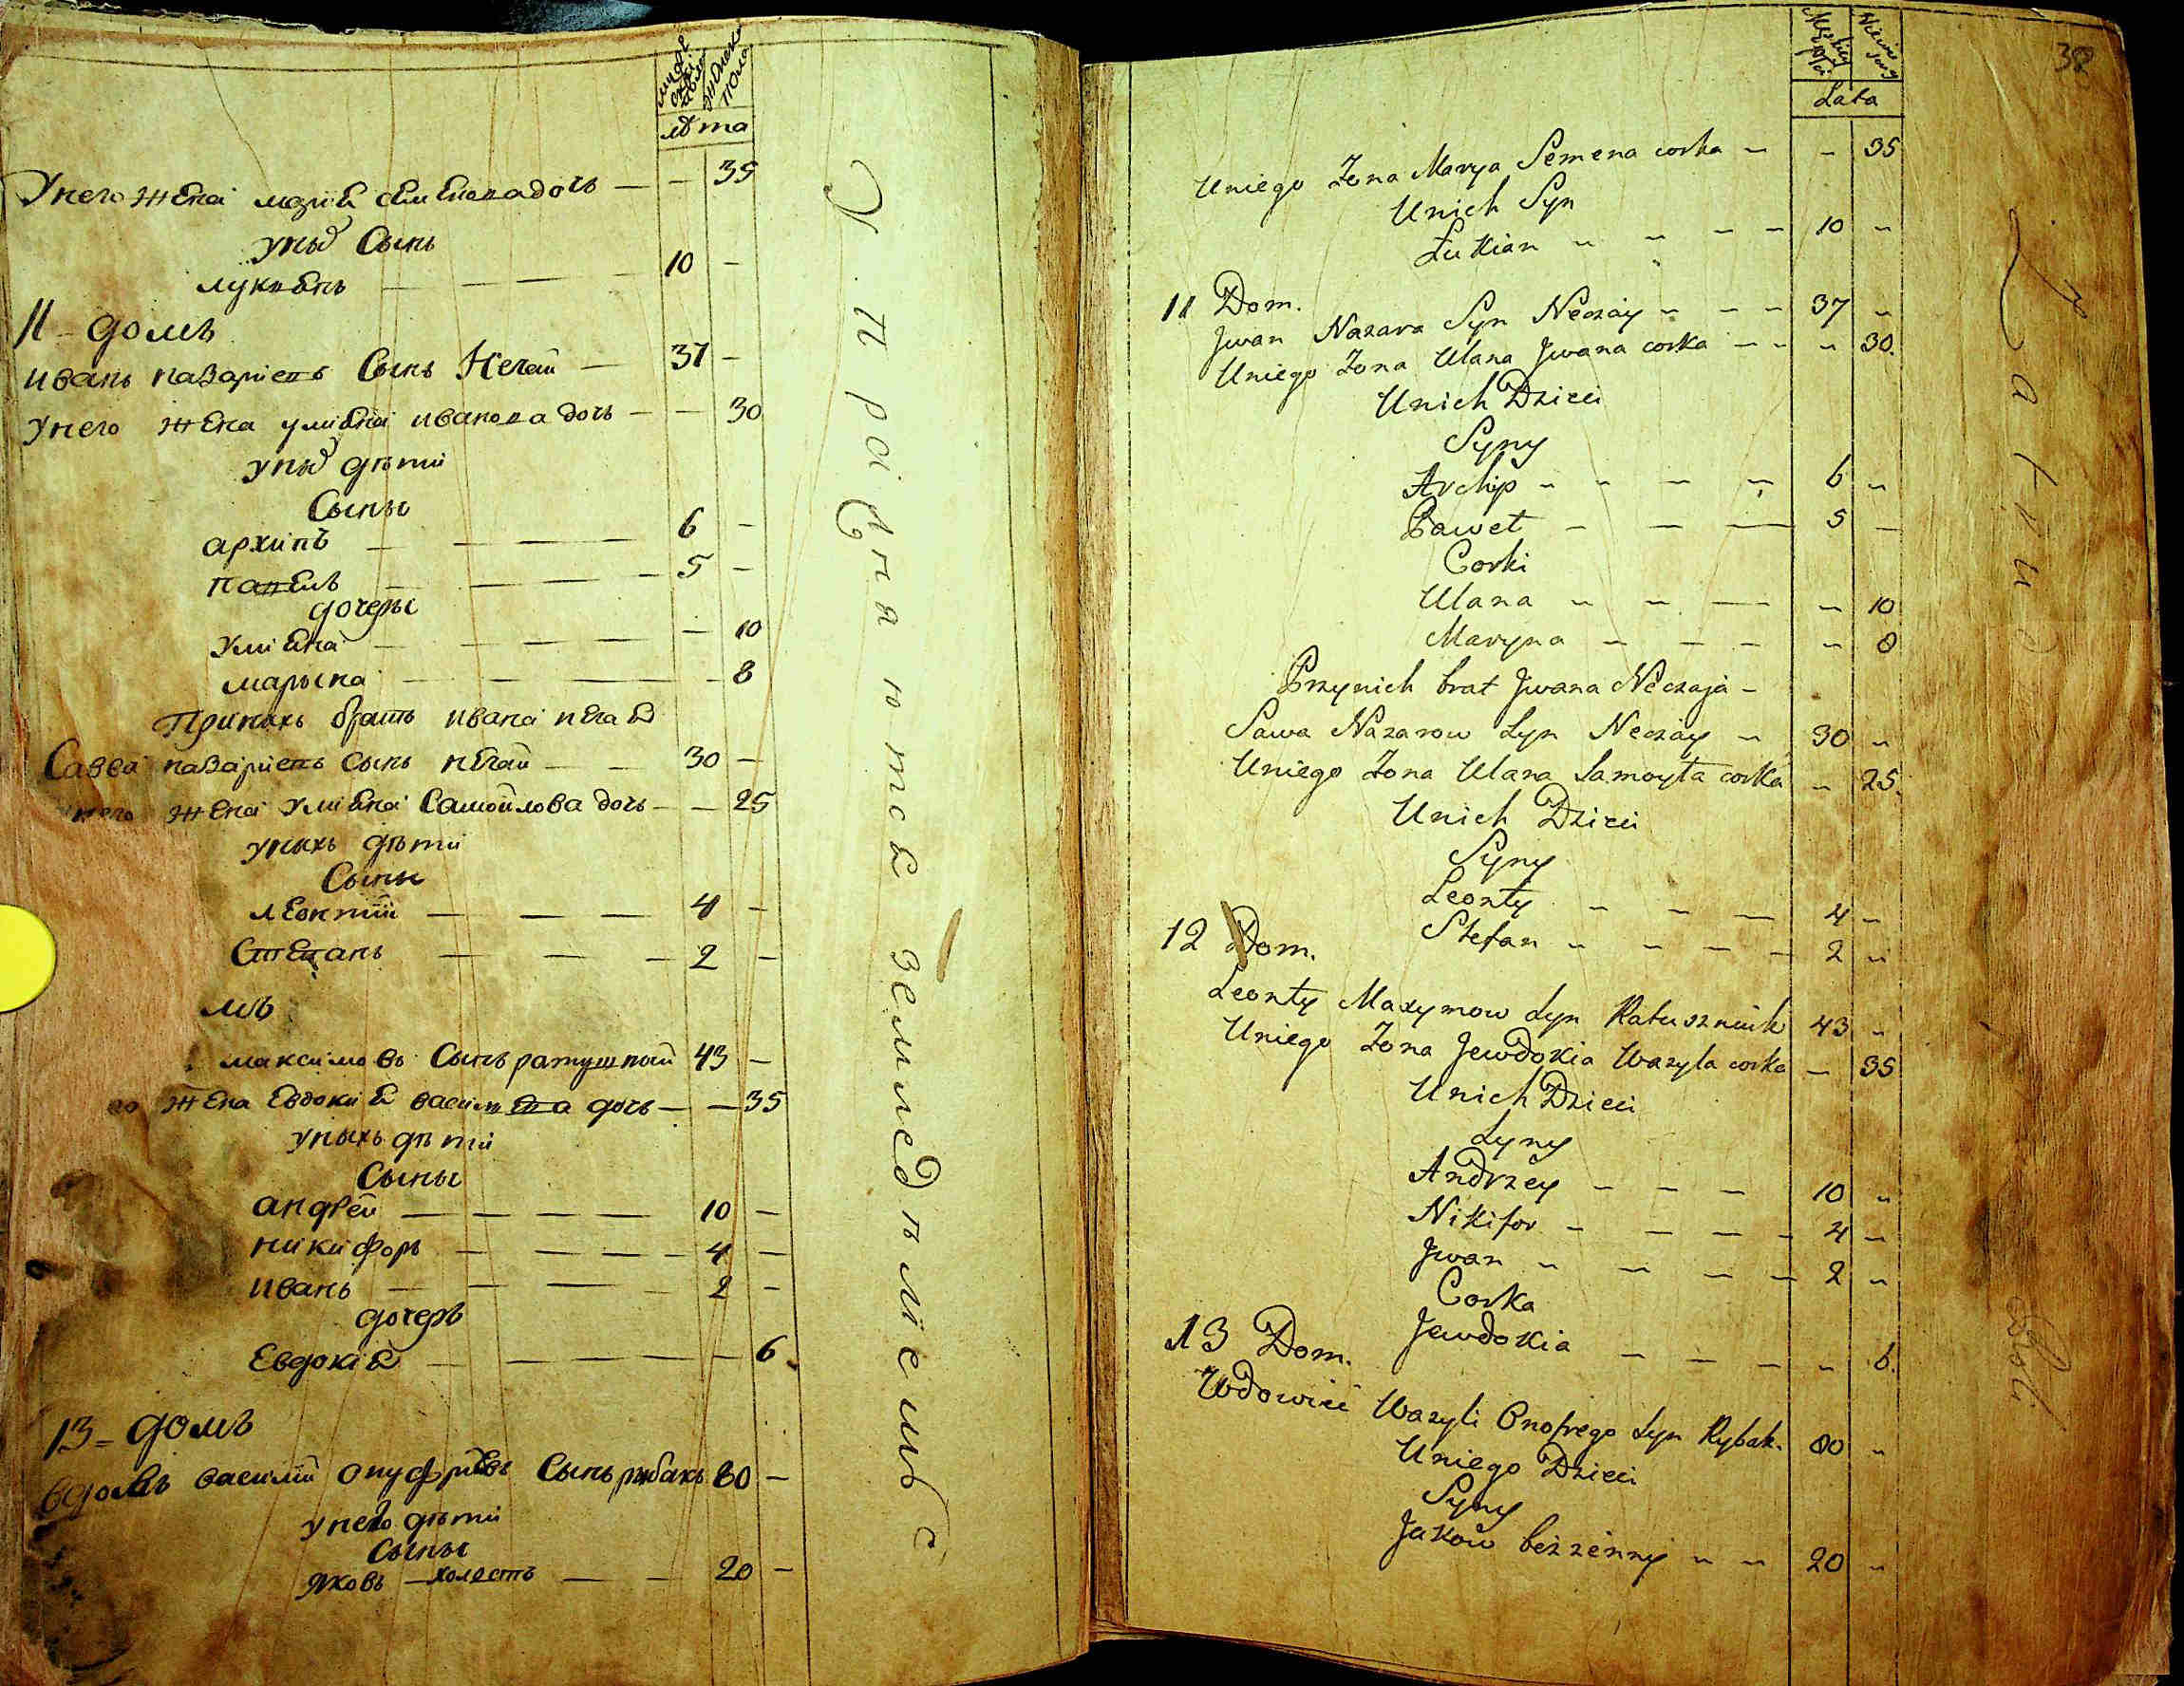 мужеска пола
женска пола
лѣта
У него жена марія семенова дочь — — 35
у ных Сынъ
лукьянъ — — — — 10 —
11 - домъ
иванъ назаріевъ Сынъ Нечай — 37 —
У него жена уліяна иванова дочь — — 30
у ных дѣти
Сыны
архипъ — — — 6 —
павелъ — — — — 5 —
дочеры
Уліяна — — — — — 10
марына — — — — 8
При ныхъ братъ ивана нечая
Савва назаріевъ сынъ нечай — — 30 —
него жена уліяна Самойлова дочь — — 25
у ныхъ дѣти
Сыны
леонтій — — — 4 —
Степанъ — — — 2 —
мъ
максимовъ Сынъ ратушный 43 —
го жена Евдокия василева дочь — — 35
у ныхъ дѣти
Сыны
андрей — — — — — 10 —
никифоръ — — — — 4 —
иванъ — — — — 2 —
дочерь
Евдокия — — — — — 6
13 - домъ
вдовъ василій онуфріевъ Сынъ рыбакъ 80 —
у него дѣти
Сыны
яковъ — холостъ — — 20 —
Упражняются земледѣліемъ
38
Lata
Uniego Żona Marya Semena corka „ „ 35
Unich Syn
Łukian „ „ – – 10 „
11 Dom.
Jwan Nazara Syn Neczay „ – – 37 „
Uniego Żona Ulana Jwana corka – „ „ 30.
Unich Dzieci
Syny
Archip „ „ – „ 6 „
Paweł – – — 5 —
Corki
Ulana „ „ — „ 10
Maryna – – – „ 8
Przynich brat Jwana Neczaja –
Sawa Nazarow Syn Neczay „ 30 „
Uniego Żona Ulana Samoyła corka „ 25.
Unich Dzieci
Syny
Leonty – – — 4 „
Stefan „ „ – – 2 „
12 Dom.
Leonty Maxymow Syn Ratusznuik 43 „
Uniego Żona Jewdokia Wazyla corka – 35
Unich Dzieci
Syny
Andrzey – – – 10 „
Nikifor – – – – 4 „
Jwan „ „ – – 2 „
Corka
Jewdokia – – – „ 6.
13 Dom.
Wdowiec Wazyli Onofrego Syn Rybak. 80 „
Uniego Dzieci
Syny
Jakow bezżenny „ „ 20 „
Roli